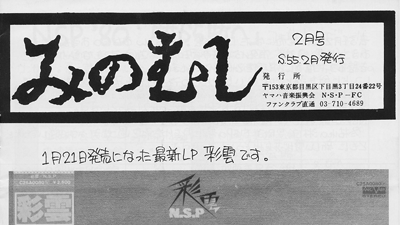 みのむし
2月号
S55 2月発行
発行所
〒153東京都目黒区下目黒3丁目24番22号
ヤマハ音楽振興会 N・S・P-FC
ファンクラブ直通 03-710-4689
1月21日発売になった最新LP 彩雲です。
彩雲
彩雲
N.S.P